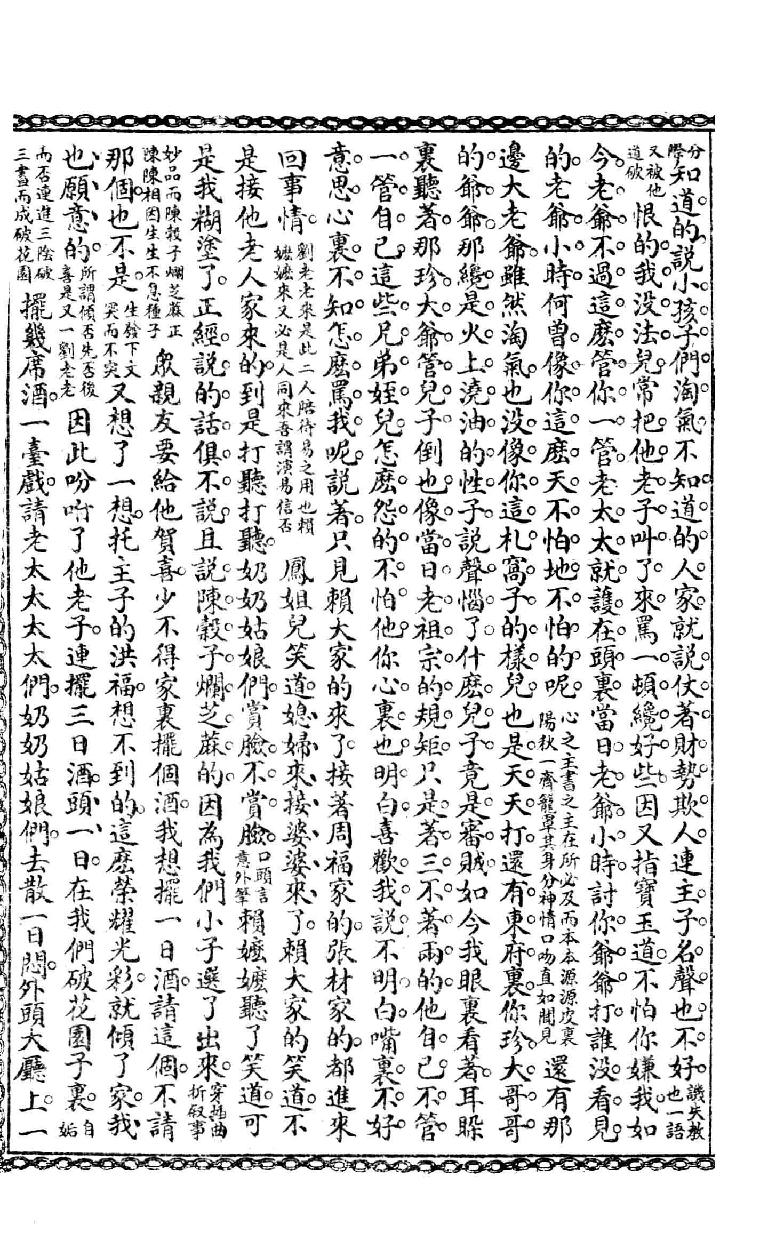 分際知道的說小孩子們淘氣不知道的人家就說仗著財勢欺人連主子名聲也不好譏失教也一語
又被他道破恨的我没法兒常把他老子叫了來罵一頓纔好些因又指寶玉道不怕你嫌我如
今老爺不過這麽管你一管老太太就護在頭裏當日老爺小時討你爺爺打誰没看見
的老爺小時何曾像你這麽天不怕地不怕的呢心之主書之主在所必及而本本源源皮裏陽秋一齊籠罩其身分神情口吻直如聞見還有那
邊大老爺雖然淘氣也没像你這札窩子的樣兒也是天天打還有東府裏你珍大哥哥
的爺爺那纔是火上澆油的性子說聲惱了什麽兒子竟是審賊如今我眼裏看著耳躲
裏聽著那珍大爺管兒子倒也像當日老祖宗的規矩只是著三不著兩的他自己不管
一管自己這些兄弟姪兒怎麽怨的不怕他你心裏也明白喜歡我說不明白嘴裏不好
意思心裏不知怎麽罵我呢說著只見賴大家的來了接著周福家的張材家的都進來
回事情劉老老來是此二人陪待易之用也賴嬷嬷來又必是人同來吾謂演易信否鳳姐兒笑道媳婦來接婆婆來了賴大家的笑道不
是接他老人家來的到是打聽打聽奶奶姑娘們賞臉不賞臉口頭言意外筆賴嬷嬷聽了笑道可
是我糊塗了正經說的話俱不說且說陳穀子爛芝蔴的因為我們小子選了出來穿揷曲折叙事
妙品而陳穀子爛芝蔴正陳陳相因生生不息種子衆親友要給他賀喜少不得家裏擺個酒我想擺一日酒請這個不請
那個也不是生發下文突而不突又想了一想托主子的洪福想不到的這麽榮耀光彩就傾了家我
也願意的所謂傾否先否後喜是又一劉老老因此吩咐了他老子連擺三日酒頭一日在我們破花園子裏自姤
而否連進三陰破三畫而成破花園擺幾席酒一臺戲請老太太太太們奶奶姑娘們去散一日悶外頭大廳上一